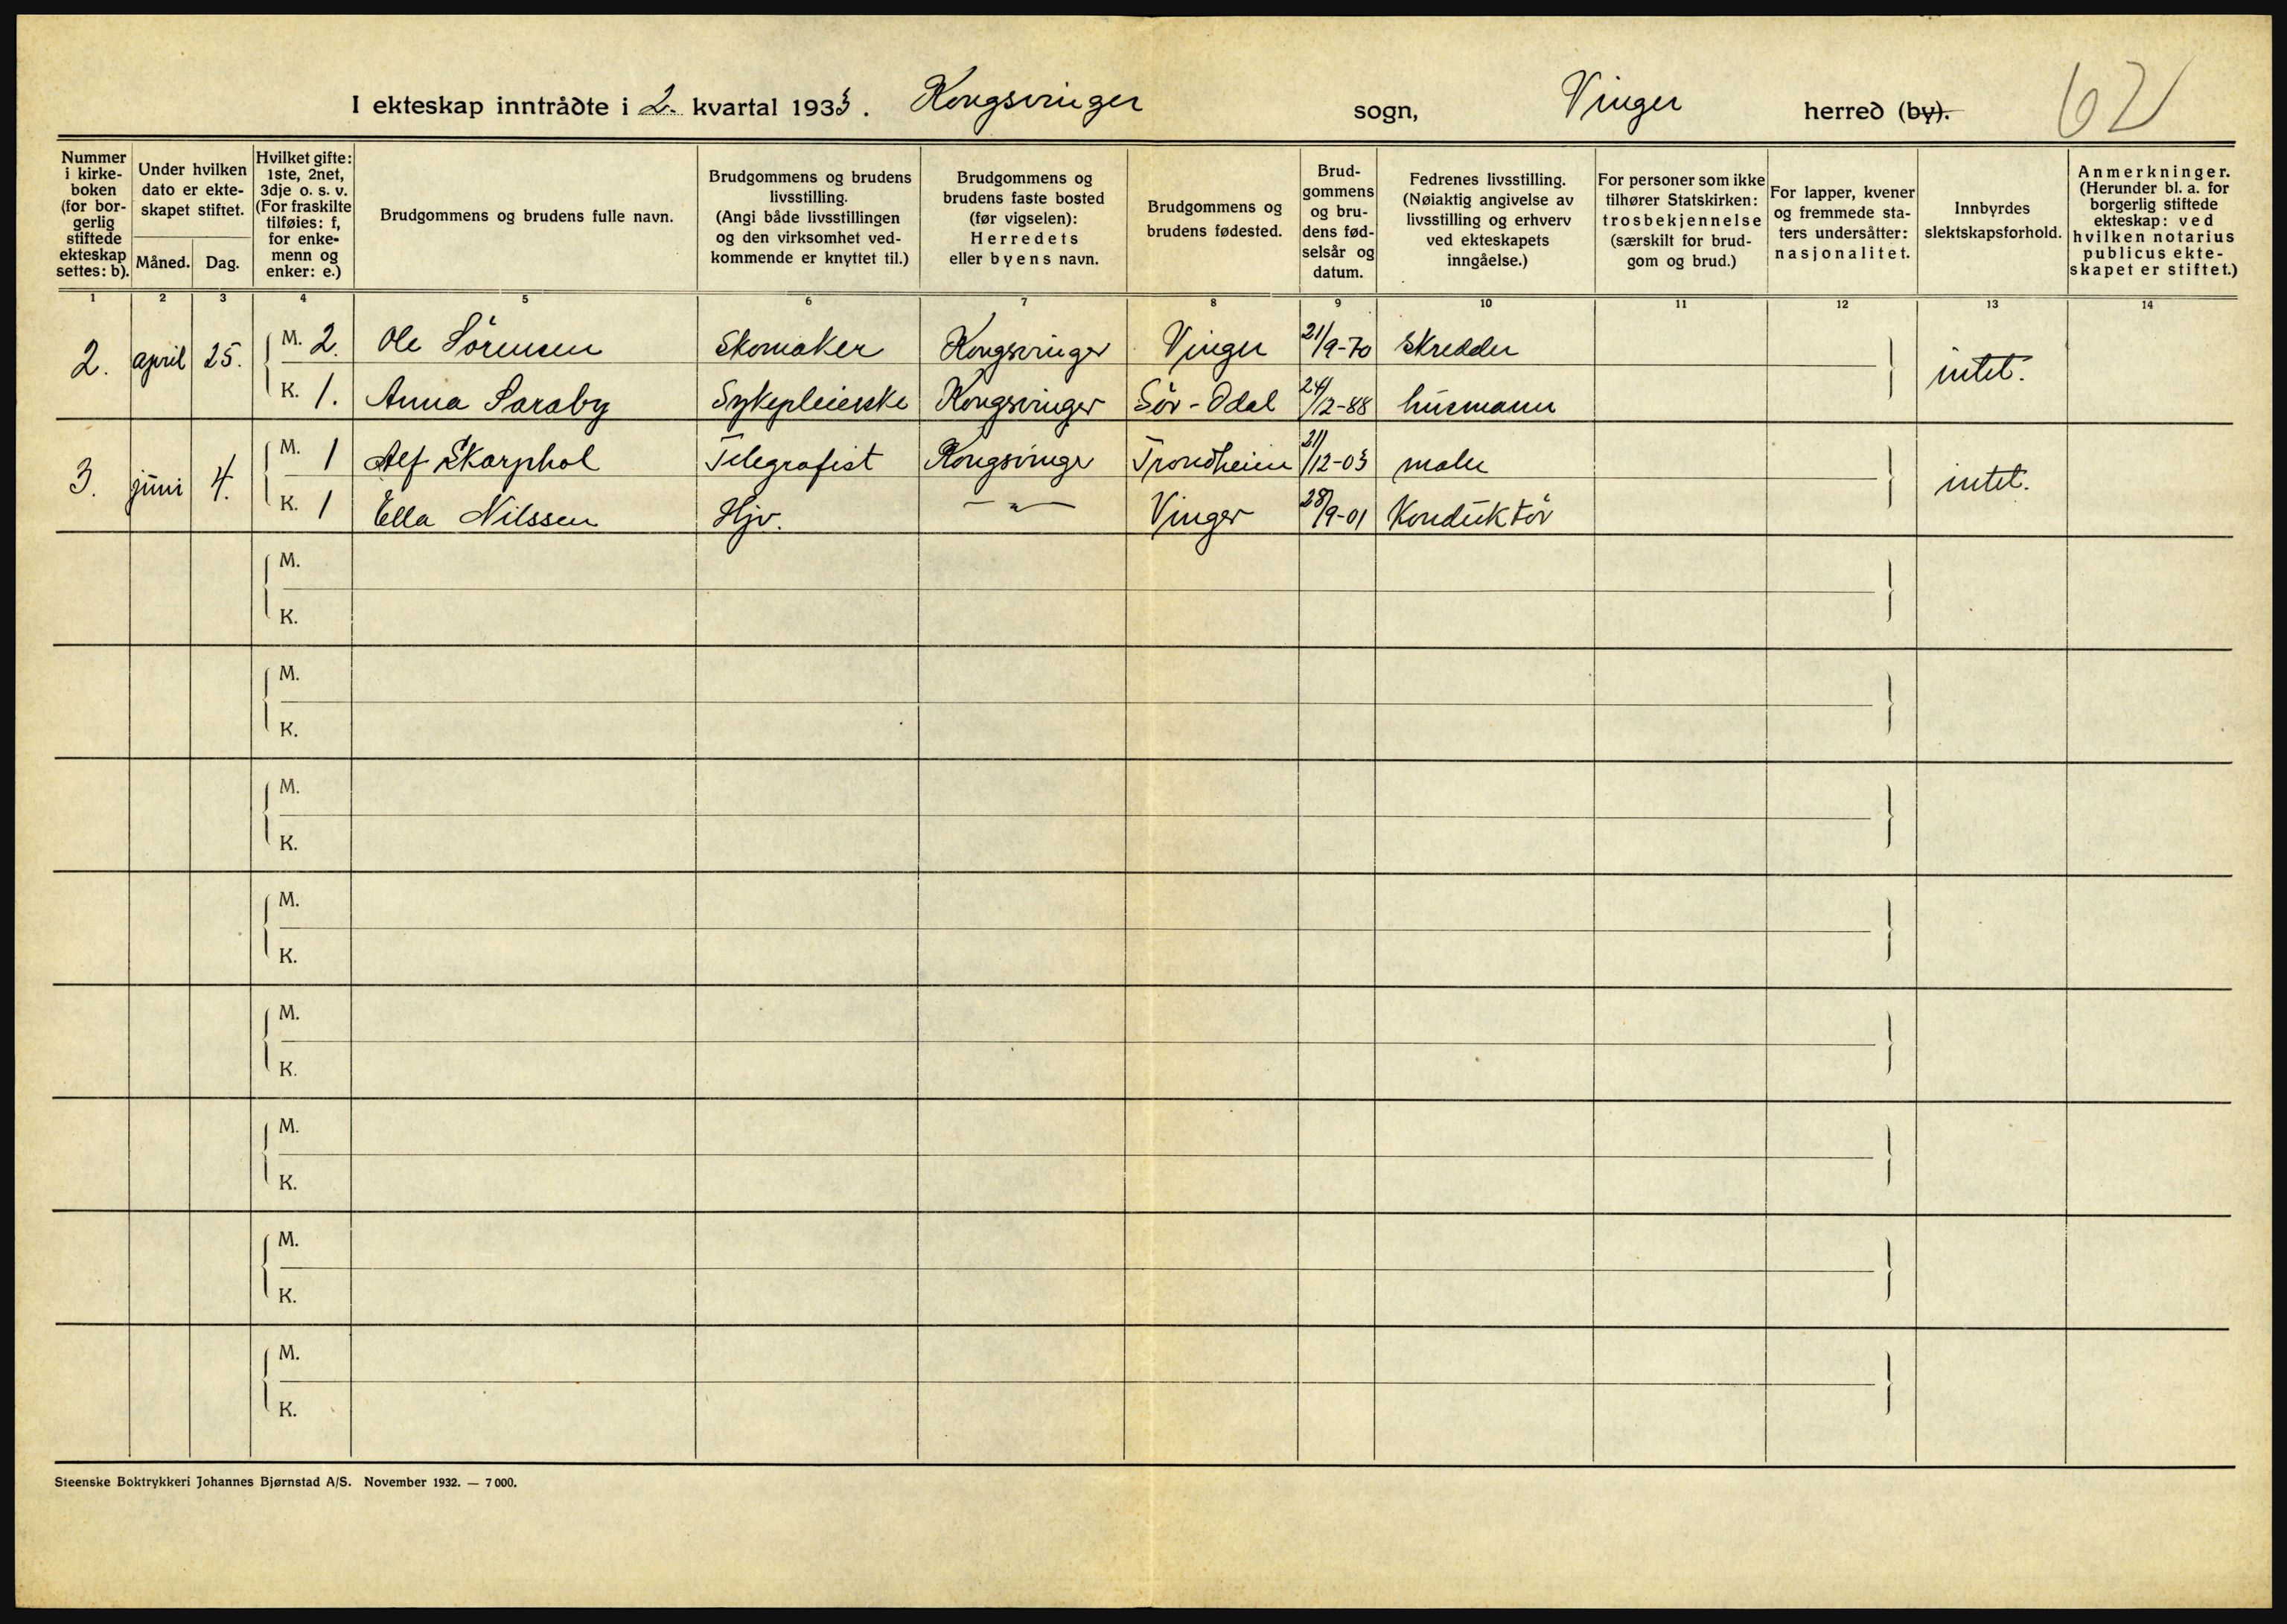 I ekteskap inntrådte i 2. kvartal 1933. Kongsvinger sogn, Vinger herred (by). 62
Nummer i kirke- boken (for bor- gerlig stiftede ekteskap settes: b).
Under hvilken dato er ekte- skapet stiftet.
Måned. Dag.
Hvilket gifte: 1ste, 2net, 3dje o. s. v. (For fraskilte tilføies: f, for enke- menn og enker: e.)
Brudgommens og brudens fulle navn.
Brudgommens og brudens livsstilling. (Angi både livsstillingen og den virksomhet ved- kommende er knyttet til.)
Brudgommens og brudens faste bosted (før vigselen): Herredets eller byens navn.
Brudgommens og brudens fødested.
Brud- gommens og bru- dens fød- selsår og datum.
Fedrenes livsstilling. (Nøiaktig angivelse av livsstilling og erhverv ved ekteskapets inngåelse.)
For personer som ikke tilhører Statskirken: trosbekjennelse (særskilt for brud- gom og brud.)
For lapper, kvener og fremmede sta- ters undersåtter: nasjonalitet.
Innbyrdes slektskapsforhold.
Anmerkninger. (Herunder bl. a. for borgerlig stiftede ekteskap: ved hvilken notarius publicus ekte- skapet er stiftet.)
1 2 3 4 5 6 7 8 9 10 11 12 13 14
2. april 25. M. 2. Ole Sörensen Skomaker Kongsvinger Vinger 21/9-70 Skredder intet.
K. 1. Anna Saraby Sykepleierske Kongsvinger Sör-Odal 24/12-88 husmann
3. juni 4. M. 1 Alf Skarphol Telegrafist Kongsvinger Trondheim 21/12-03 maler intet.
K. 1 Ella Nilssen Hjv. — " — Vinger 28/9-01 Konduktör
M.
K.
M.
K.
M.
K.
M.
K.
M.
K.
M.
K.
M.
K.
M.
K.
Steenske Boktrykkeri Johannes Bjørnstad A/S. November 1932. — 7 000.